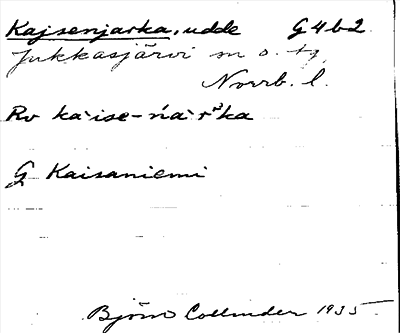 Kajsenjarka, udde G4b2
Jukkasjärvi sn o. tg
Norrb. l.
Rv ka`ise-ńa`rˀka
G Kaisaniemi
Björn Collinder 1935